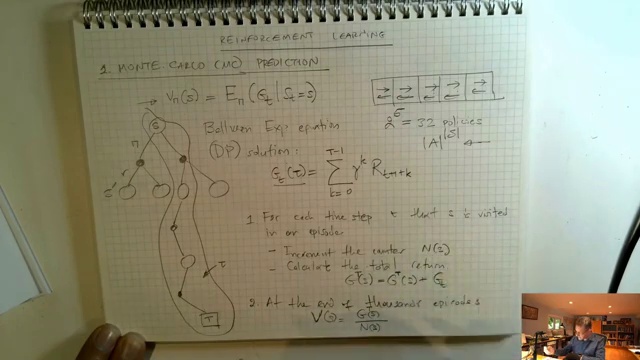 REINFORCEMENT LEARNING
1. MONTE CARLO (MC) PREDICTION
→ Vπ(s) = Eπ(Gt | St = s)
Bellman Exp equation
(DP) solution:
Gt(τ) = Σ_{k=0}^{T-1} γ^k R_{t+1+k}
2^5 = 32 policies
|A|^|S| ←
S
π
s', r
τ
T
1. For each time step t that s is visited
in an episode
- Increment the counter N(s)
- Calculate the total return
G^T(s) = G^T(s) + Gt
2. At the end of thousands episodes
V(s) = G(s) / N(s)